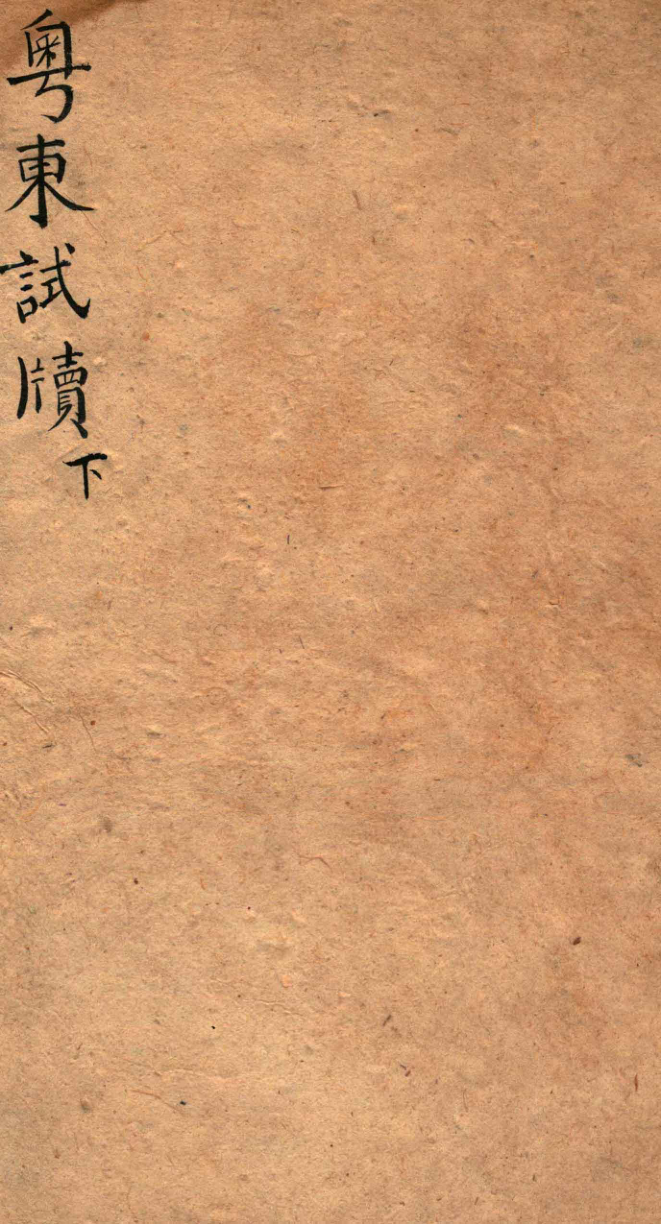 粤東試牘下